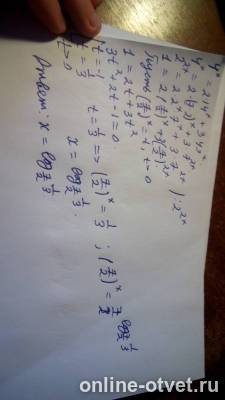 4ˣ = 2·14ˣ + 3·49ˣ
2²ˣ = 2·(7·2)ˣ + 3·7²ˣ
2²ˣ = 2·2ˣ·7ˣ + 3·7²ˣ | : 2²ˣ
1 = 2·(7/2)ˣ + 3(7/2)²ˣ
Пусть (7/2)ˣ = t, t>0
1 = 2t + 3t²
3t² + 2t - 1 = 0
t = -1
t = 1/3 t = 1/3 => (7/2)ˣ = 1/3 ; (7/2)ˣ = 7/2^(log_(7/2) 1/3)
t > 0 x = log_(7/2) 1/3.
Ответ: x = log_(7/2) 1/3
online-otvet.ru